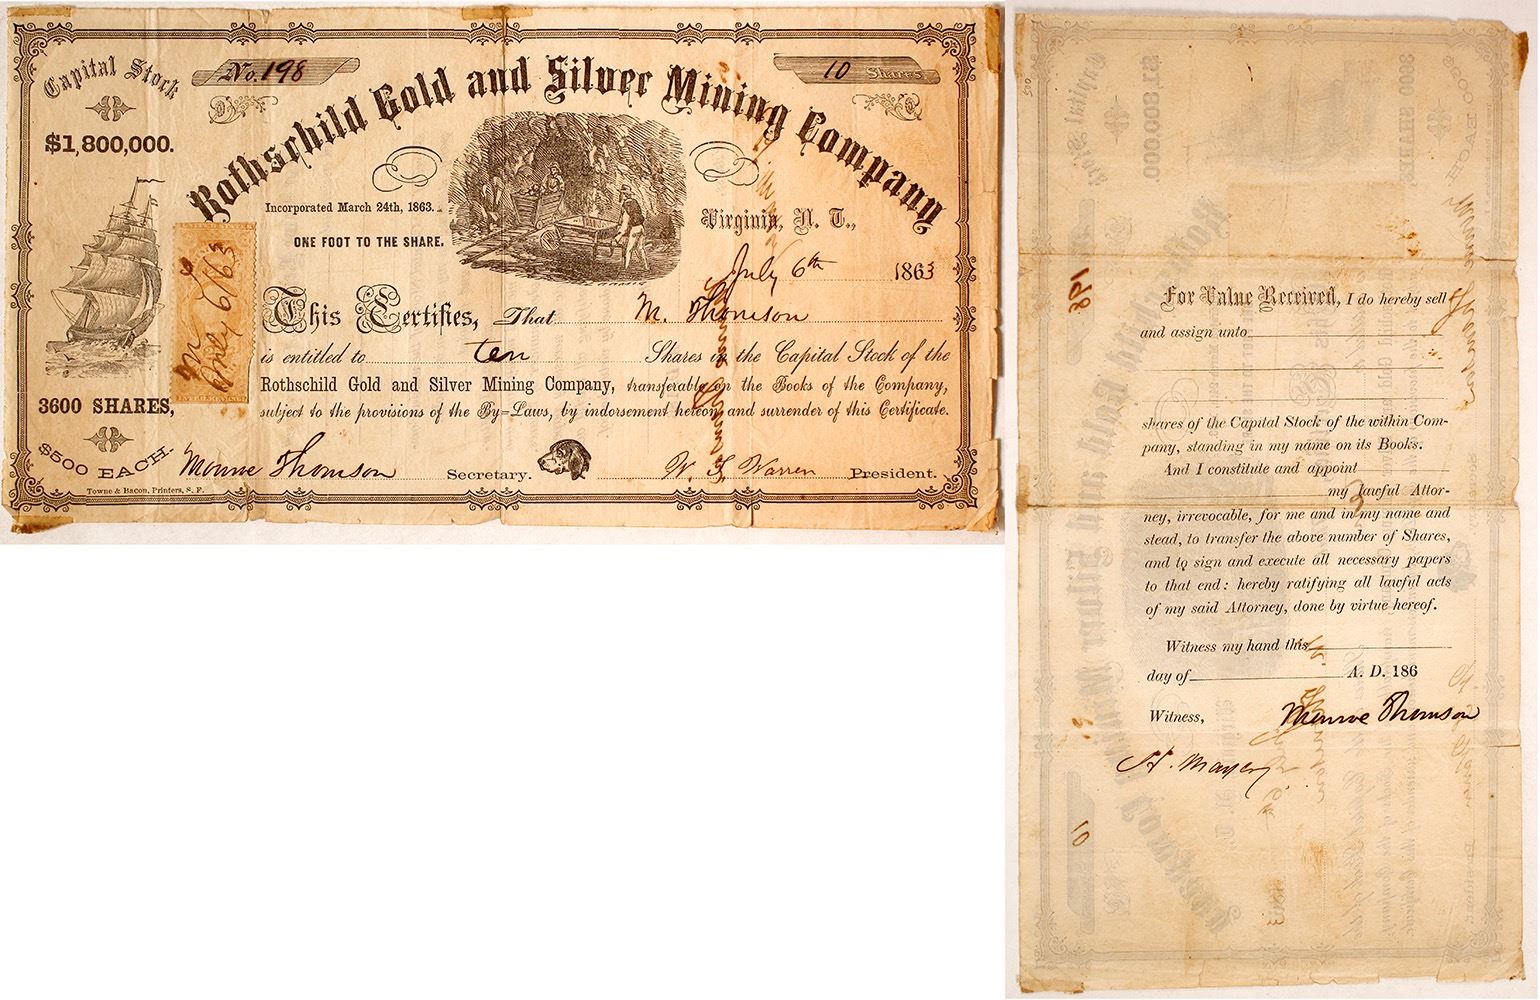 Capital Stock
$1,800,000.
No. 198
10 Shares
Rothschild Gold and Silver Mining Company
Incorporated March 24th, 1863.
ONE FOOT TO THE SHARE.
Virginia, N. T.,
July 6th 1863
This Certifies, That M. Thomson
is entitled to ten Shares in the Capital Stock of the
Rothschild Gold and Silver Mining Company, transferable on the Books of the Company,
subject to the provisions of the By=Laws, by indorsement hereon and surrender of this Certificate.
July 6/63
3600 SHARES,
$500 EACH.
Monroe Thomson Secretary.
W. F. Warren President.
Towne & Bacon, Printers, S. F.
For Value Received, I do hereby sell
and assign unto
shares of the Capital Stock of the within Com-
pany, standing in my name on its Books.
And I constitute and appoint
my lawful Attor-
ney, irrevocable, for me and in my name and
stead, to transfer the above number of Shares,
and to sign and execute all necessary papers
to that end: hereby ratifying all lawful acts
of my said Attorney, done by virtue hereof.
Witness my hand this
day of A. D. 186
Witness, Monroe Thomson